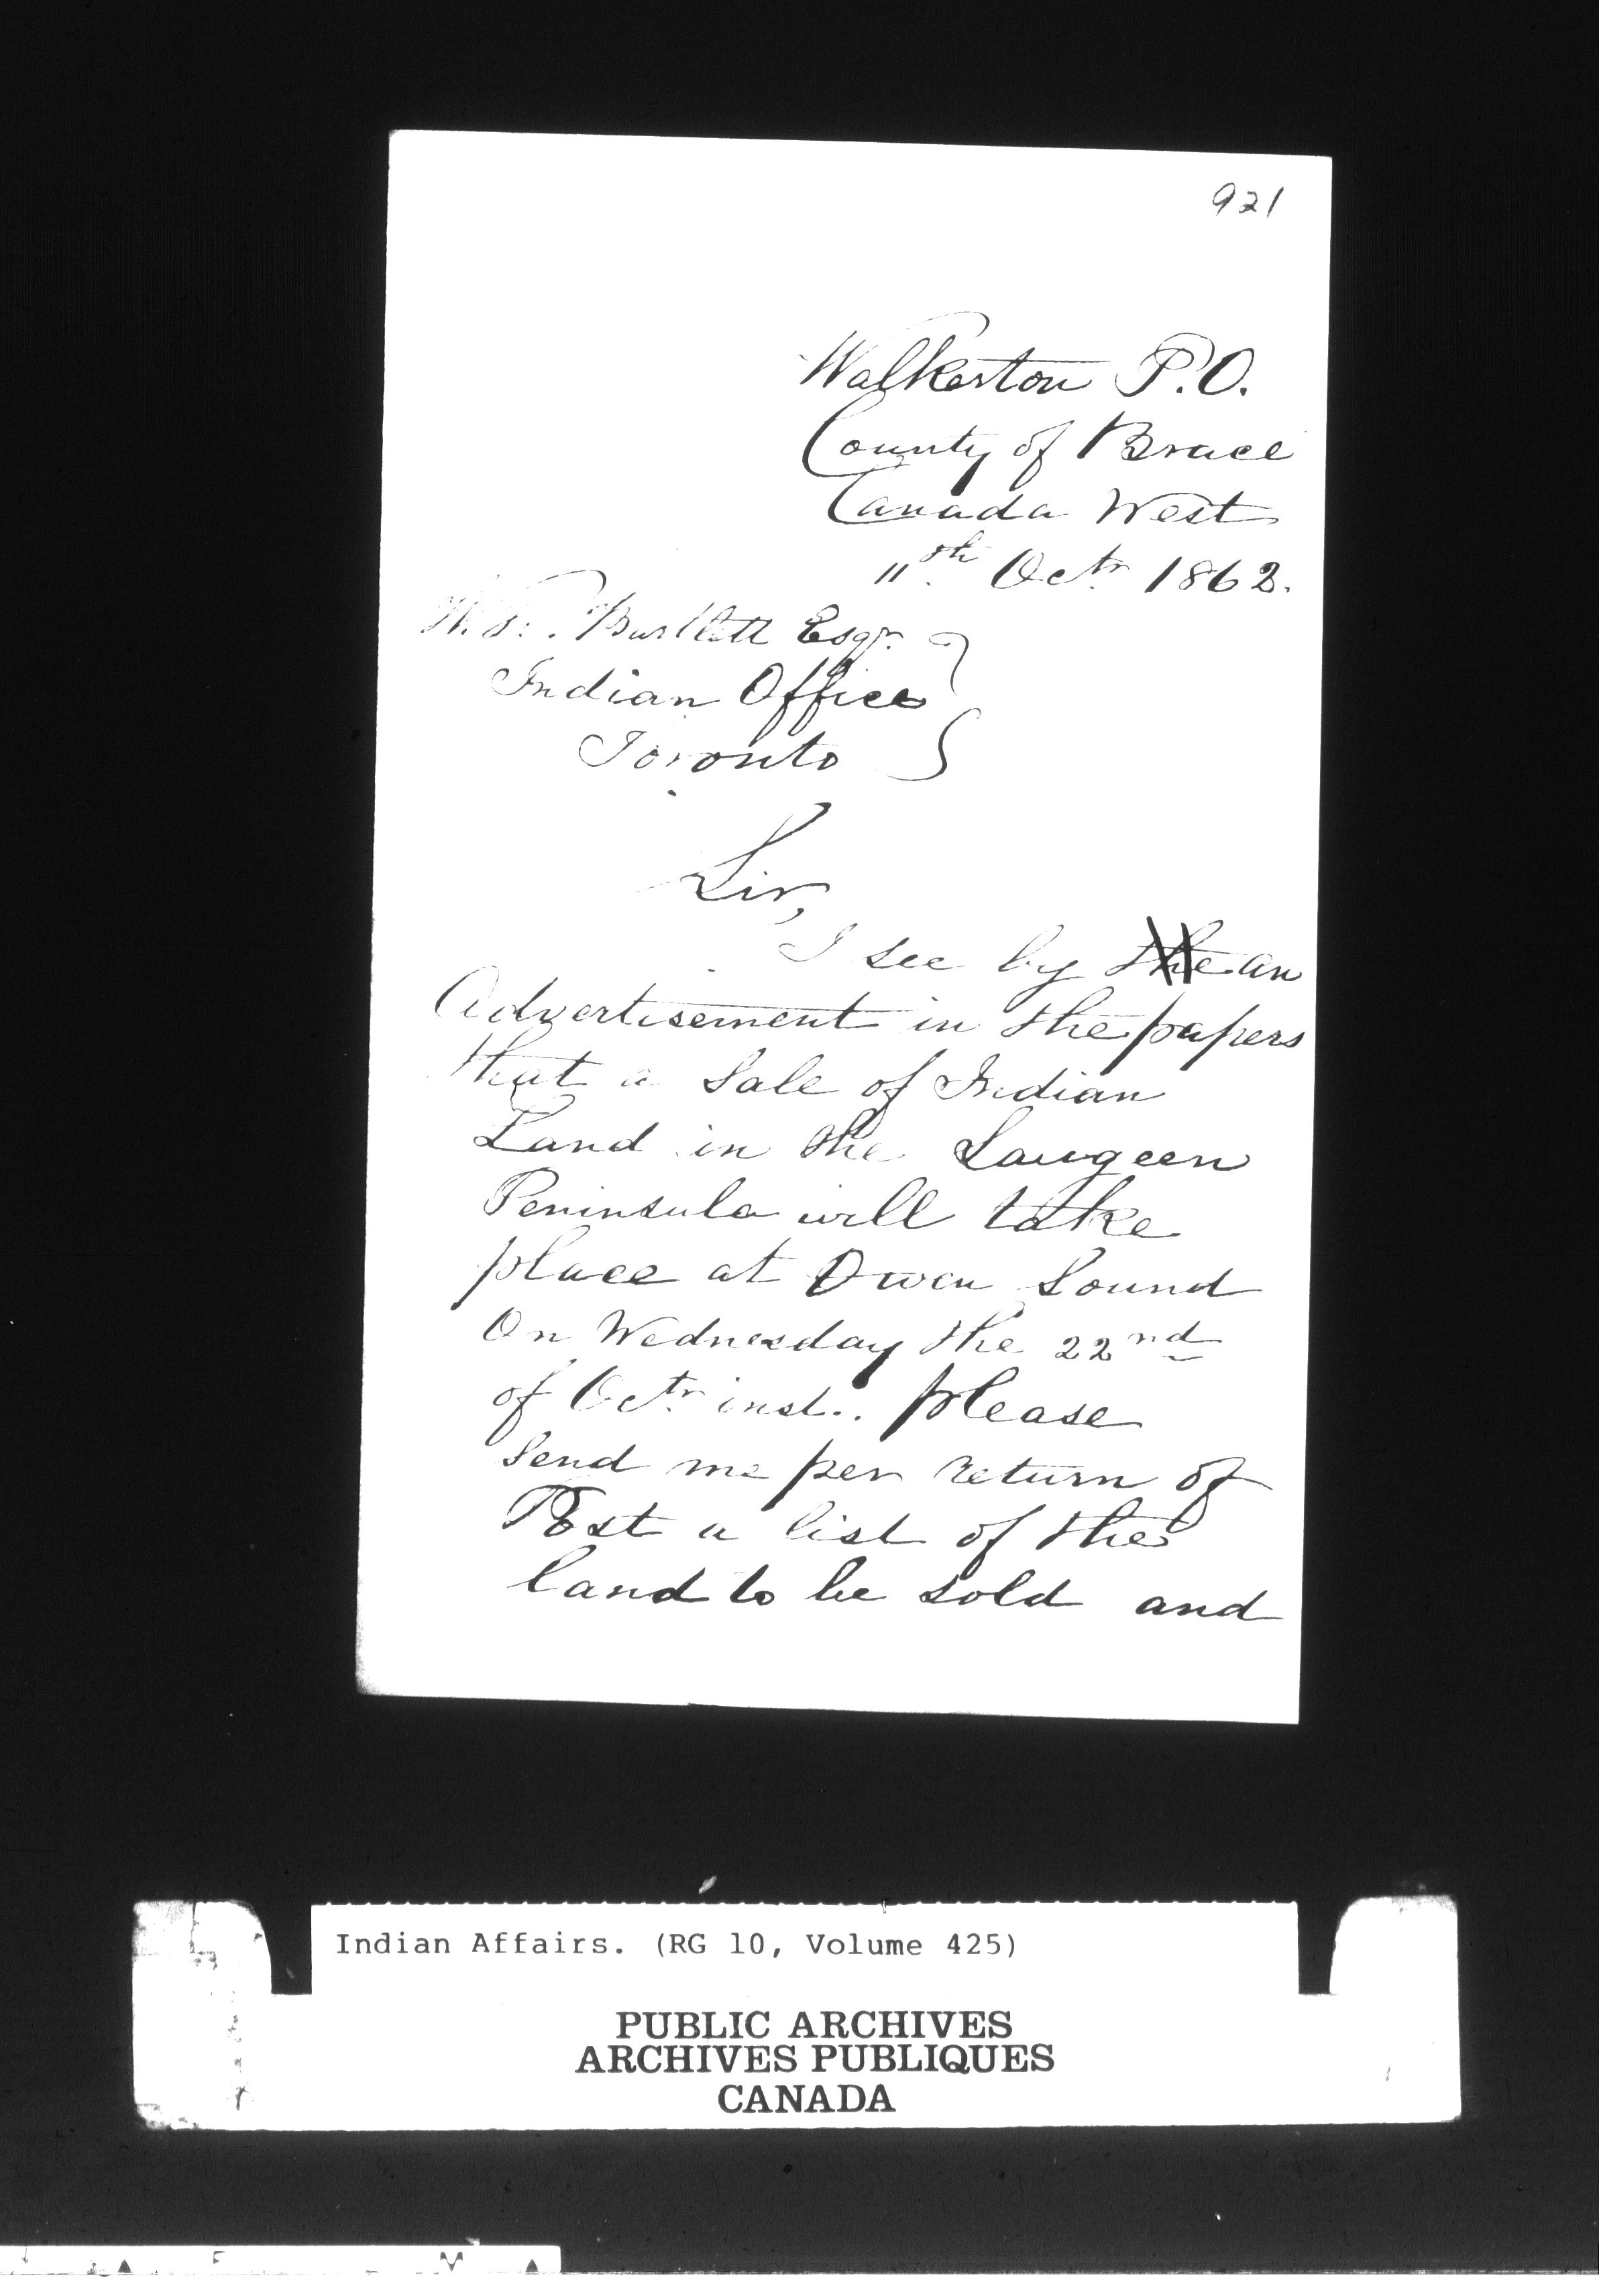 921
Walkerton P.O.
County of Bruce
Canada West
11th Octr 1862.
Bartlett Esqr.
Indian Office
Toronto
Sir,
I see by the an
Advertisement in the papers
that a Sale of Indian
Land in the Saugeen
Peninsula will take
place at Owen Sound
On Wednesday the 22nd
of Octr inst. please
Send me per return of
Post a list of the
land to be sold and
Indian Affairs. (RG 10, Volume 425)
PUBLIC ARCHIVES
ARCHIVES PUBLIQUES
CANADA